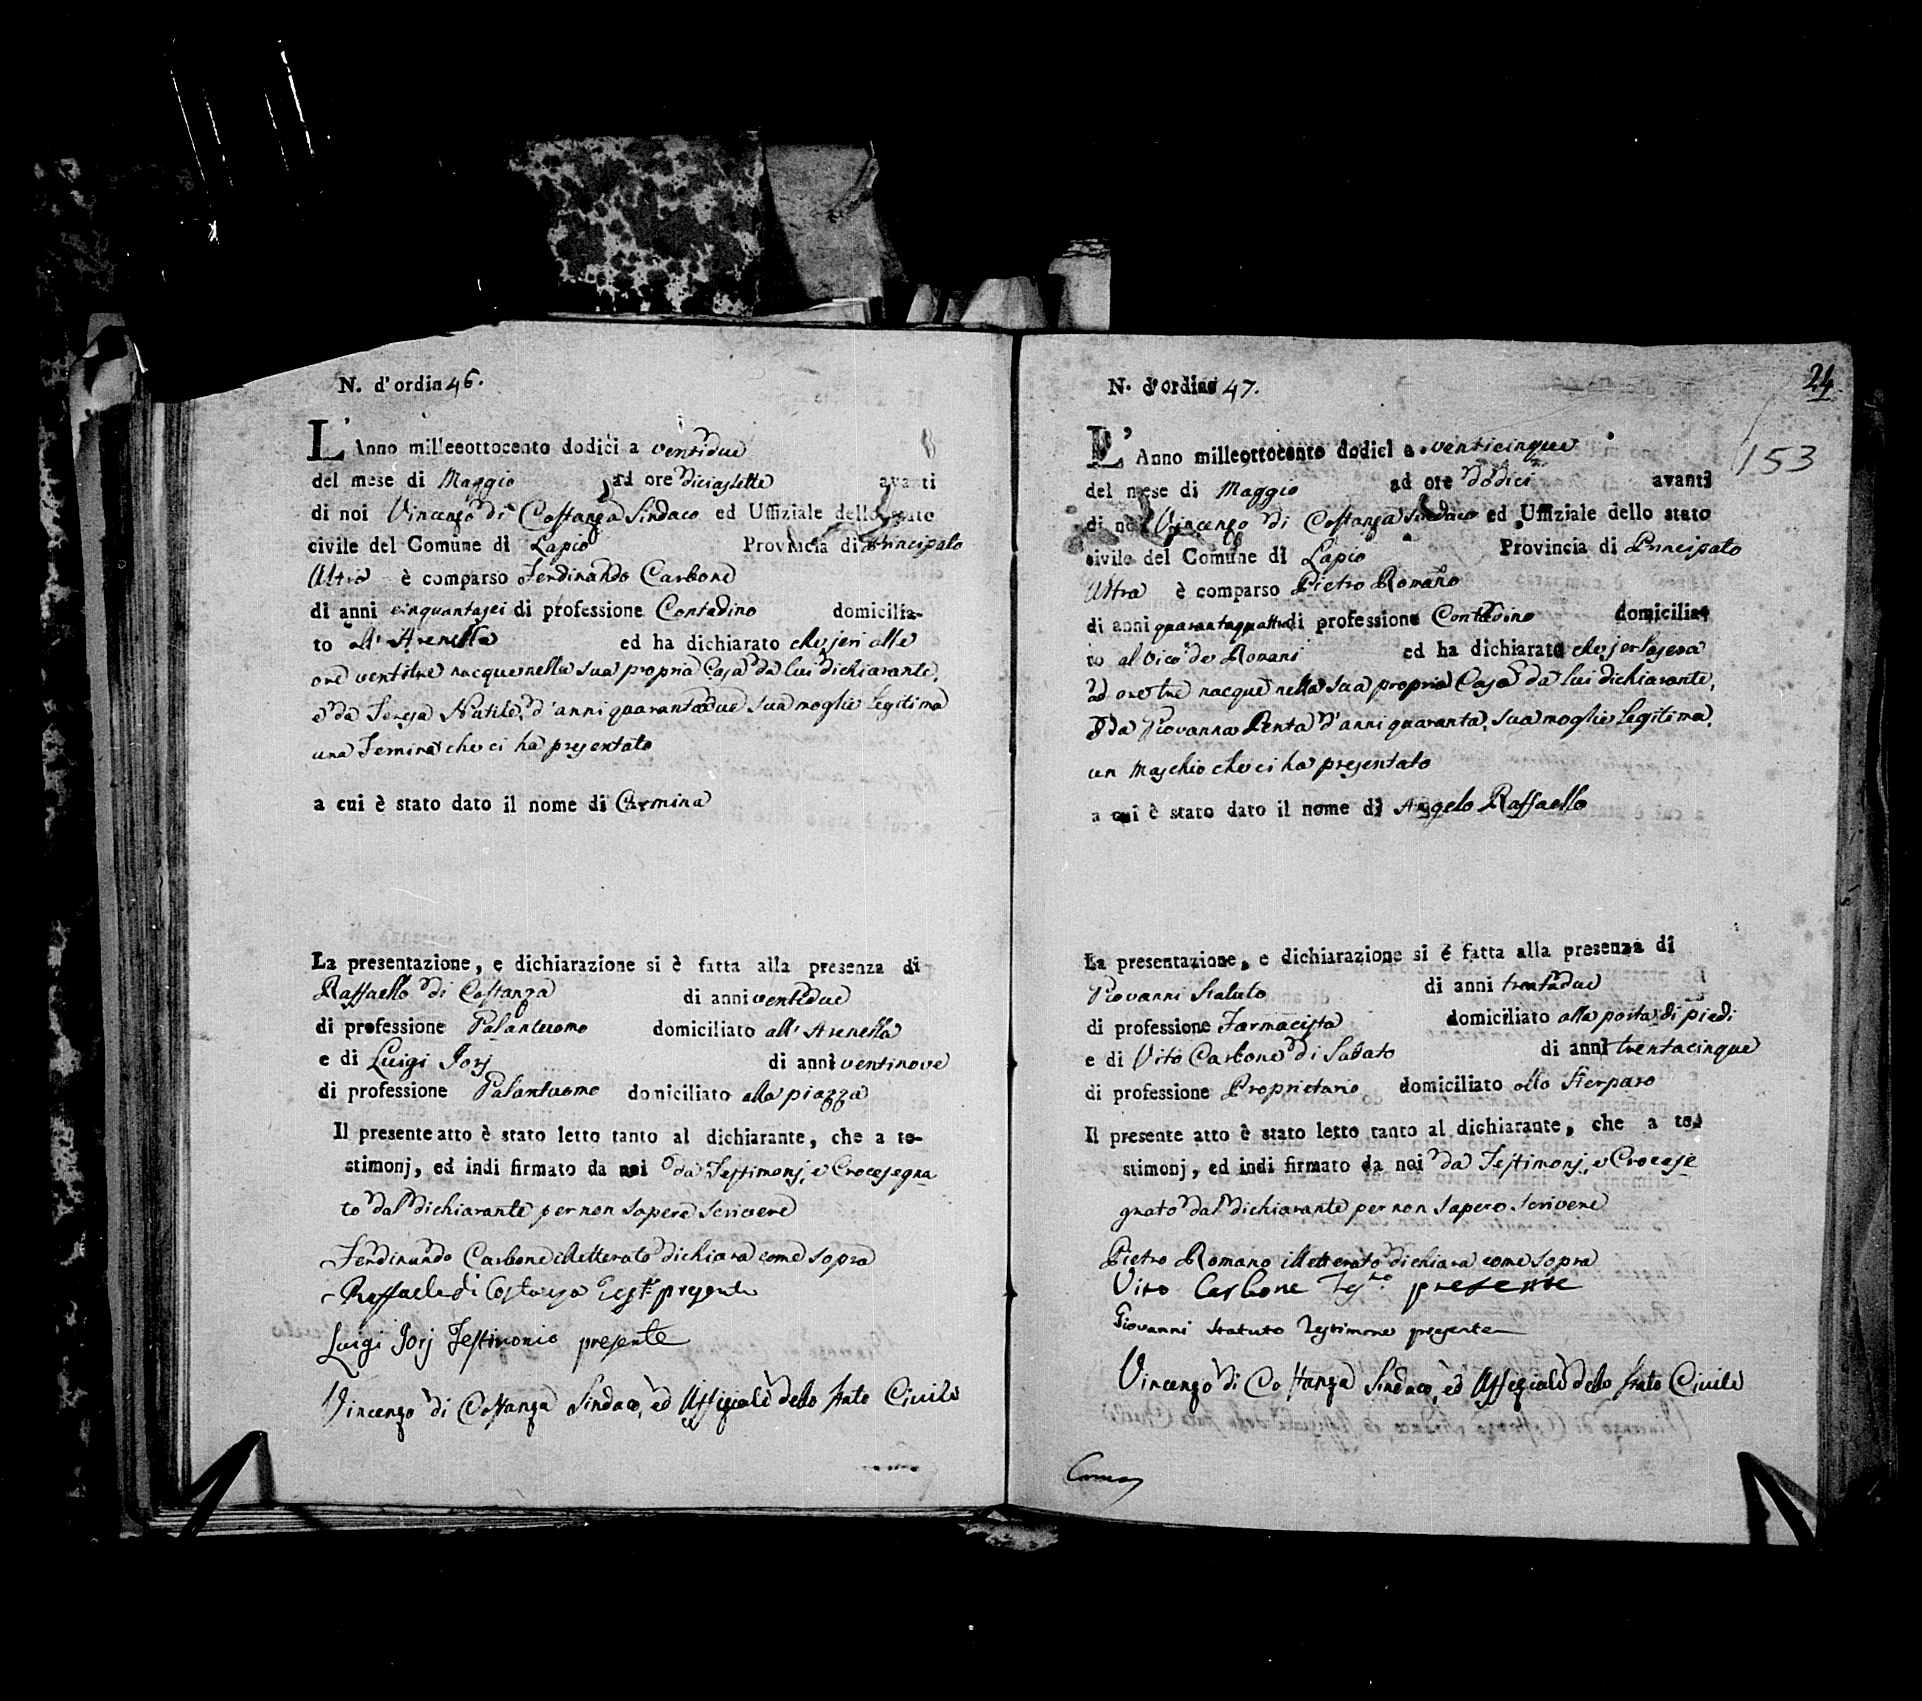 N. d'ordin 46.
L'Anno milleeottocento dodici a ventidue
del mese di Maggio ad ore diciasette avanti
di noi Vincenzo di Costanza Sindaco ed Uffiziale dello stato
civile del Comune di Lapio Provincia di Principato
Ultra è comparso Ferdinando Carbone
di anni cinquantasei di professione Contadino domicilia-
to all' Arenella ed ha dichiarato che jeri alle
ore ventitre nacque nella sua propria Casa da lui dichiarante,
e da Teresa Natile, d'anni quarantadue sua moglie legitima
una Femina che ci ha presentato
a cui è stato dato il nome di Carmina
La presentazione, e dichiarazione si è fatta alla presenza di
Raffaello di Costanza di anni ventidue
di professione Palantuomo domiciliato all' Arenella
e di Luigi Jorj di anni ventinove
di professione Palantuomo domiciliato alla piazza
Il presente atto è stato letto tanto al dichiarante, che a te-
stimonj, ed indi firmato da noi da Testimonj, e Crocesegna
to dal dichiarante per non sapere scrivere
Ferdinando Carbone illetterato dichiara come sopra
Raffaele di Costanza presente
Luigi Jorj Testimonio presente
Vincenzo di Costanza Sindaco, ed Uffiziale dello stato Civile
N. d'ordine 47.
24
153
L'Anno milleottocento dodici a venticinque
del mese di Maggio ad ore dodici avanti
di noi Vincenzo di Costanza Sindaco ed Uffiziale dello stato
civile del Comune di Lapio Provincia di Principato
Ultra è comparso Pietro Romano
di anni quarantaquattro di professione Contadino domicilia-
to al Vico de Romani ed ha dichiarato che jer la sera
ad ore tre nacque nella sua propria Casa da lui dichiarante,
e da Giovanna Penta d'anni quaranta, sua moglie legitima,
un Maschio che ci ha presentato
a cui è stato dato il nome di Angelo Raffaello
La presentazione, e dichiarazione si è fatta alla presenza di
Giovanni Statuto di anni trentadue
di professione Farmacista domiciliato alla porta di piedi
e di Vito Carbone di Sabato di anni trentacinque
di professione Proprietario domiciliato allo Sterparo
Il presente atto è stato letto tanto al dichiarante, che a te-
stimonj, ed indi firmato da noi da Testimonj, e Crocese
gnato dal dichiarante per non sapere scrivere
Pietro Romano illetterato dichiara come sopra
Vito Carbone presente
Giovanni Statuto Testimone presente
Vincenzo di Costanza Sindaco, ed Uffiziale dello stato Civile